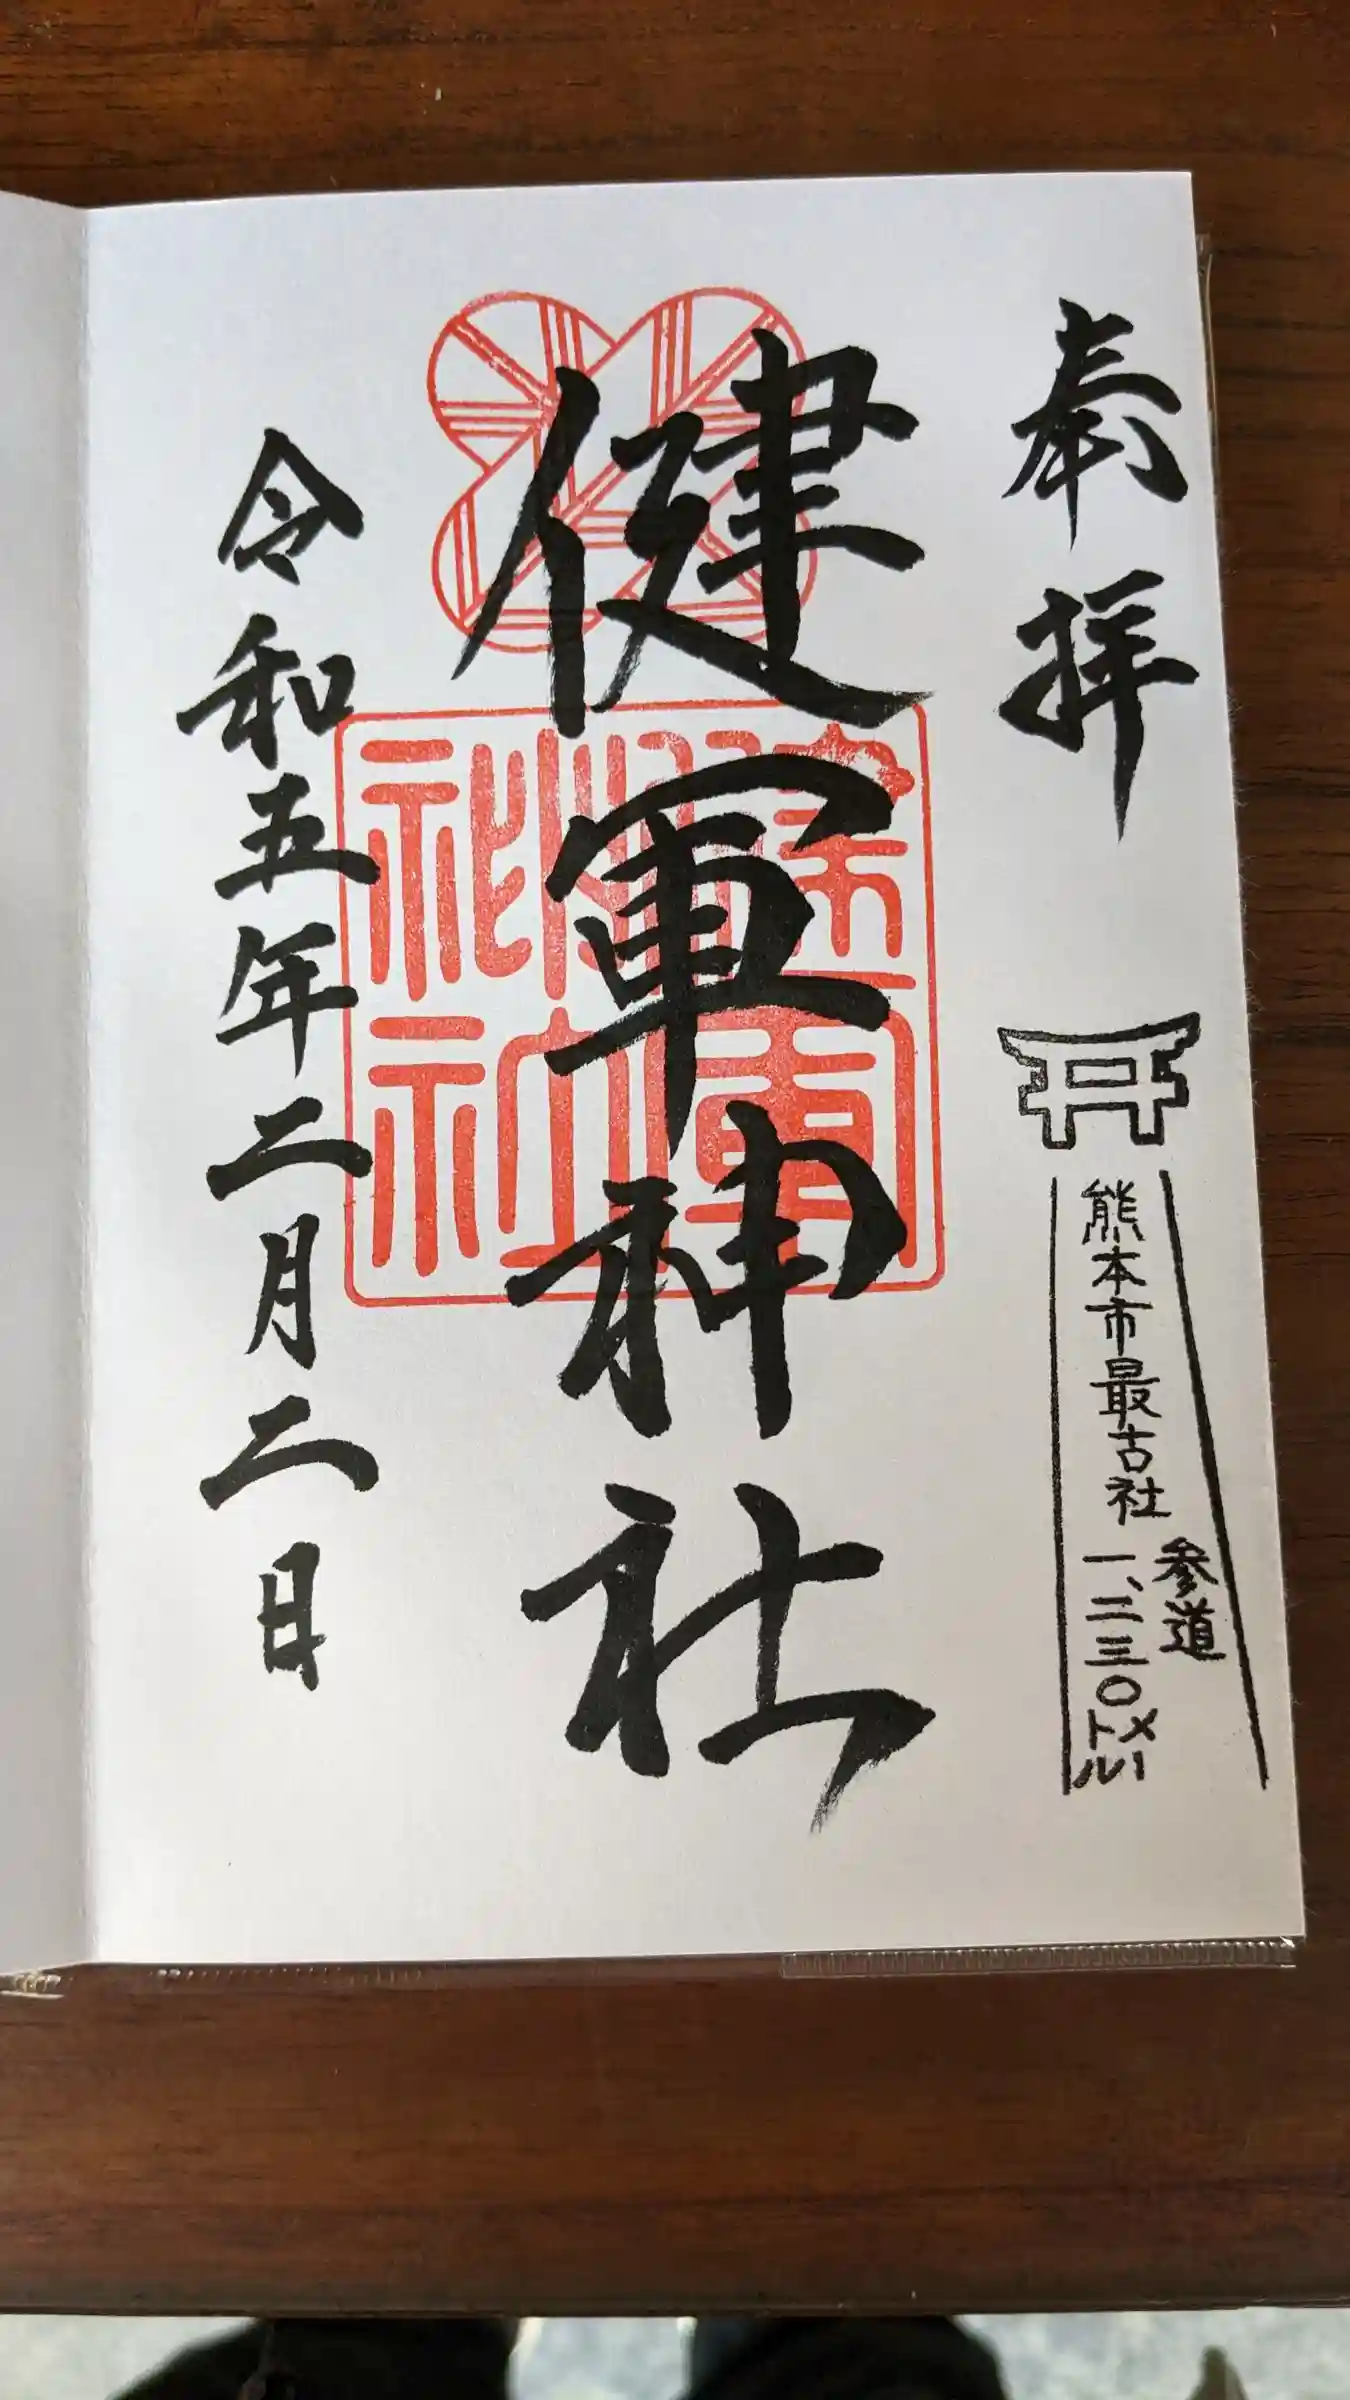 奉拝
熊本市最古社
参道
一、二三〇メートル
健軍神社
健軍神社
令和五年二月二日